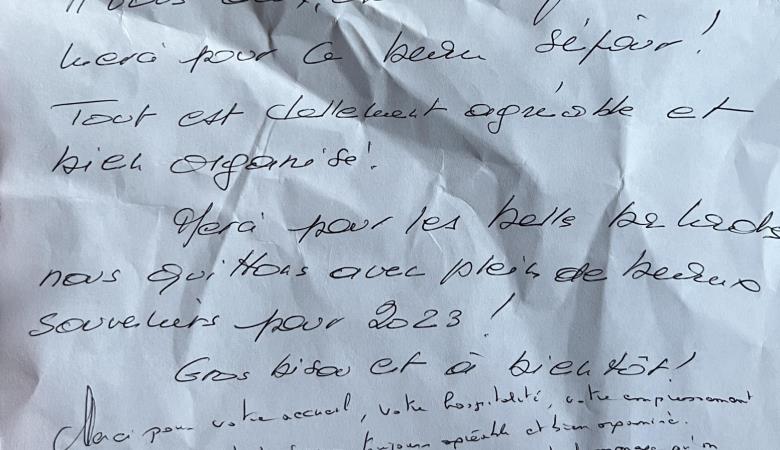 Merci pour ce beau séjour!
Tout est tellement agréable et
bien organisé!
Merci pour les belles balades
nous quittons avec plein de beaux
souvenirs pour 2023!
Gros bisou et à bientôt!
Merci pour votre accueil, votre hospitalité, votre empressement
toujours agréable et bien organisé.